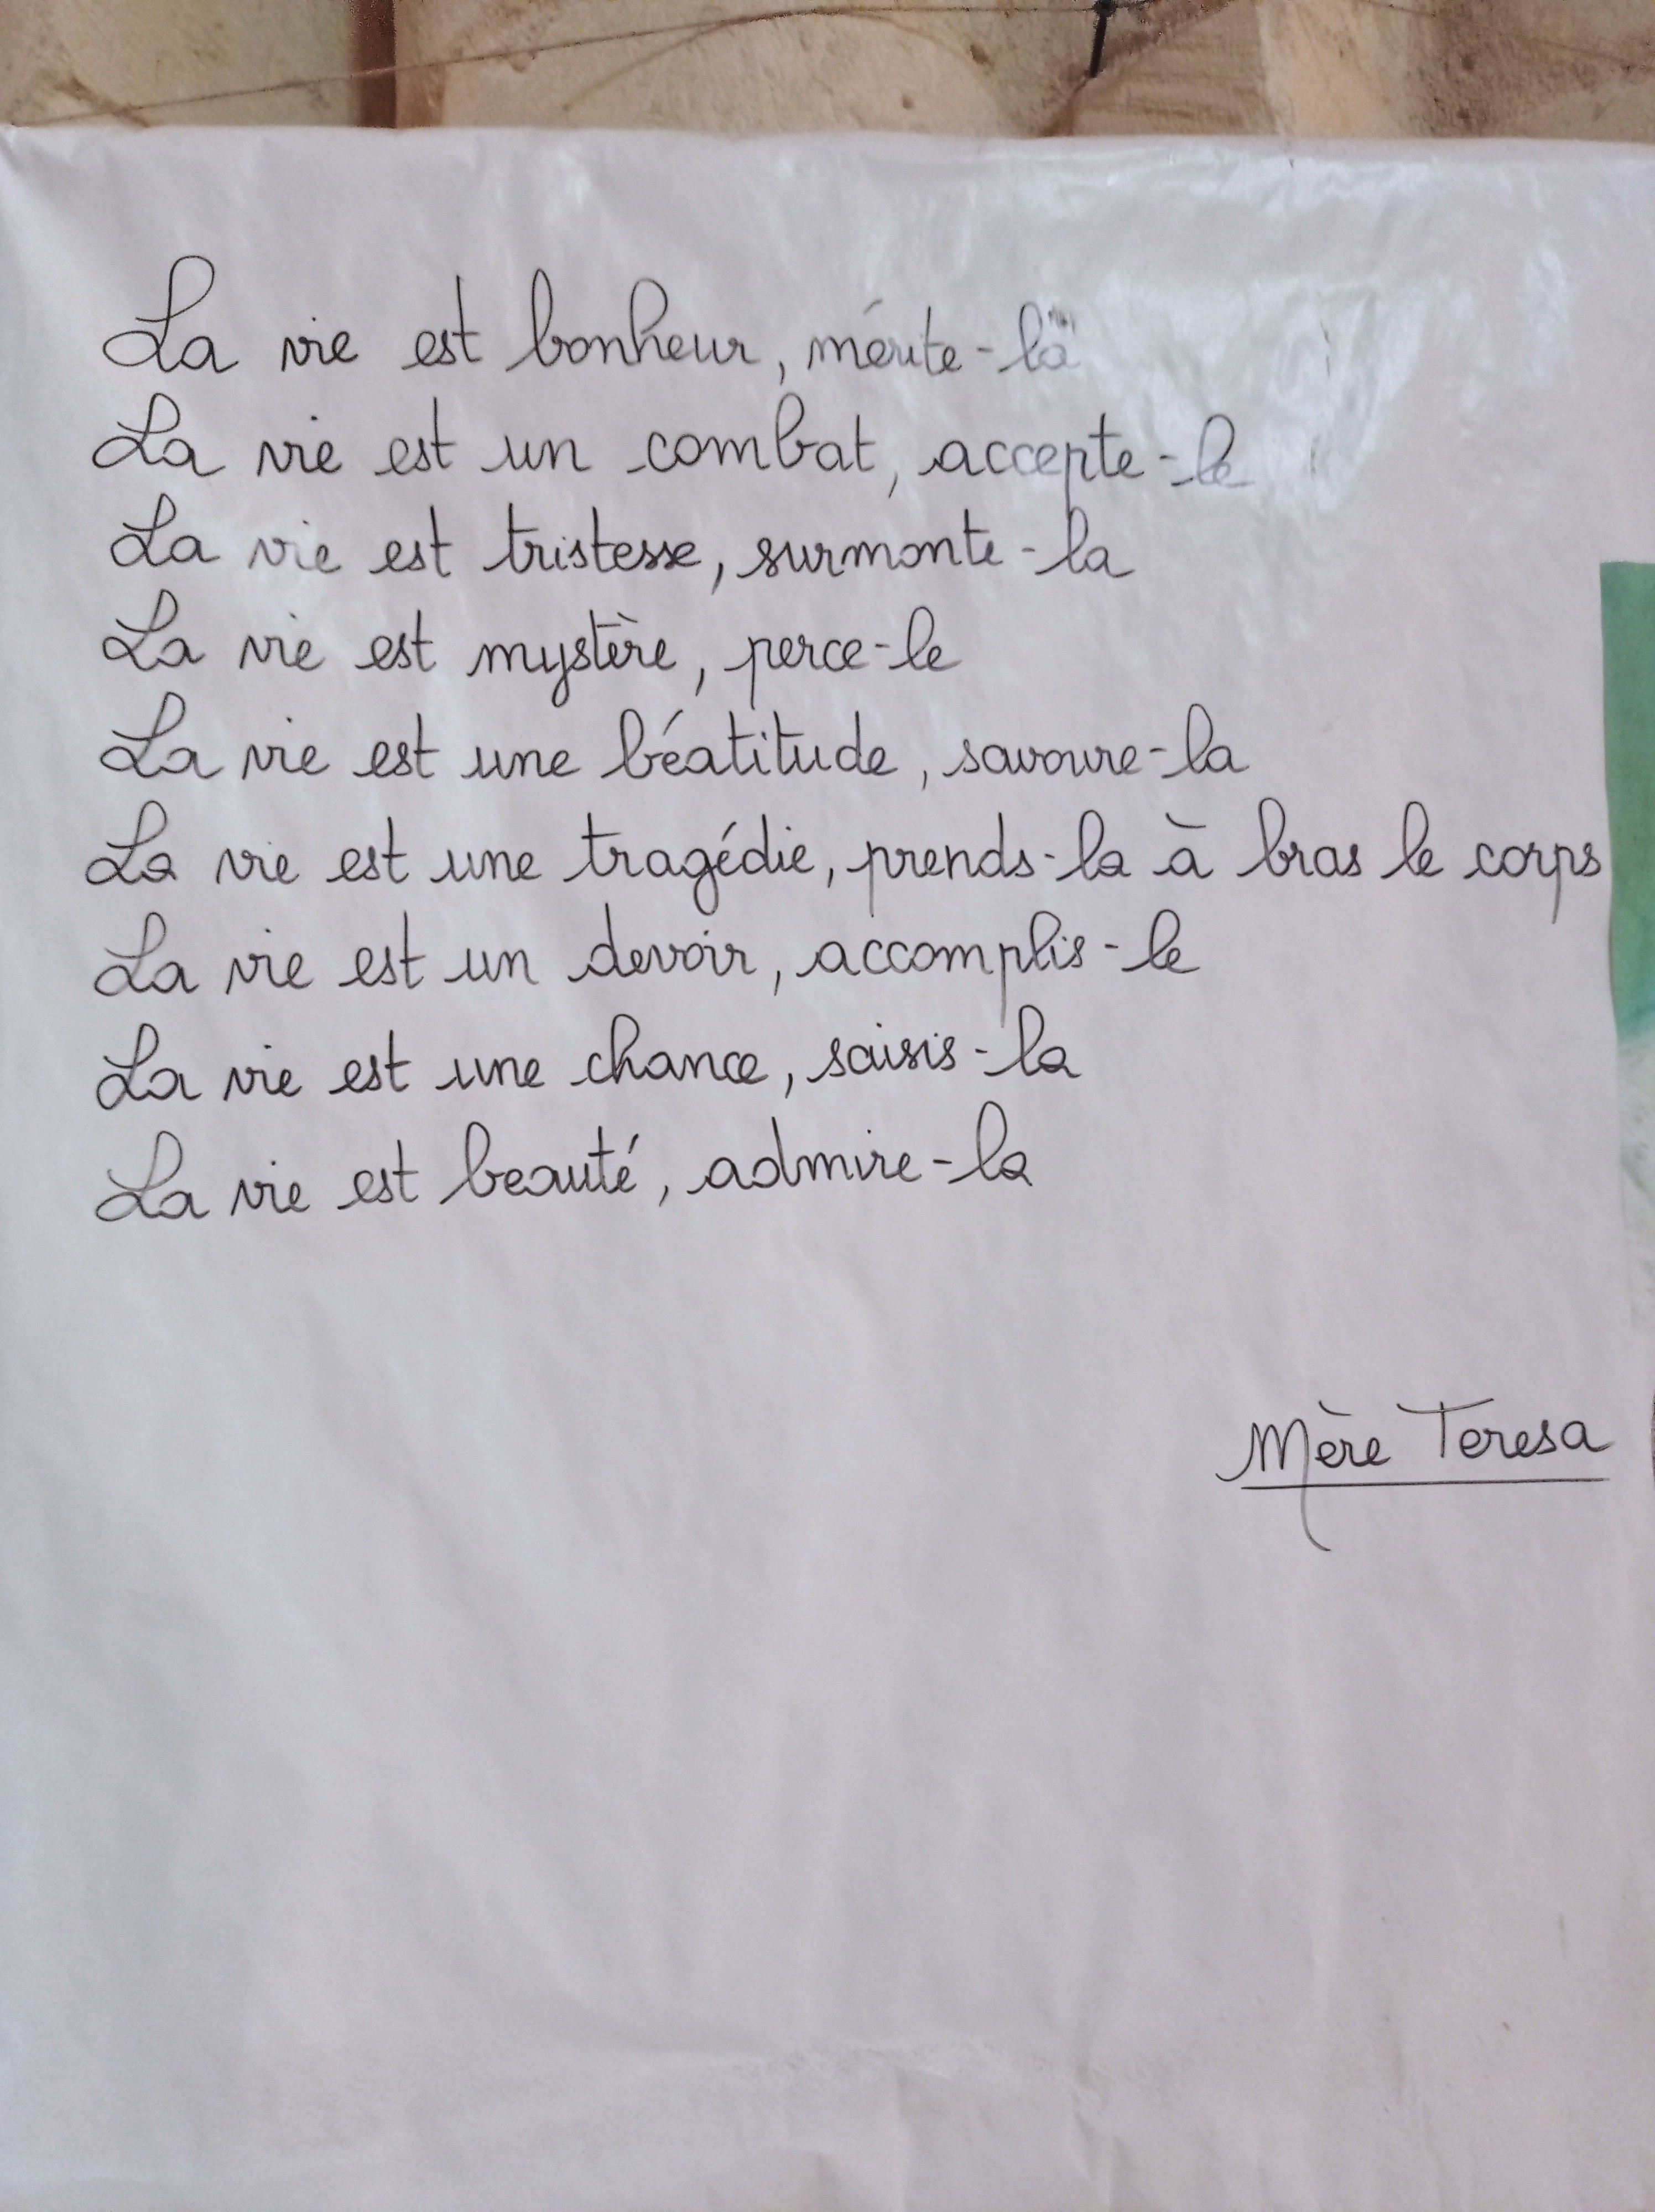 La vie est bonheur, mérite-la
La vie est un combat, accepte-le
La vie est tristesse, surmonte-la
La vie est mystère, perce-le
La vie est une béatitude, savoure-la
La vie est une tragédie, prends-la à bras le corps
La vie est un devoir, accomplis-le
La vie est une chance, saisis-la
La vie est beauté, admire-la
Mère Teresa